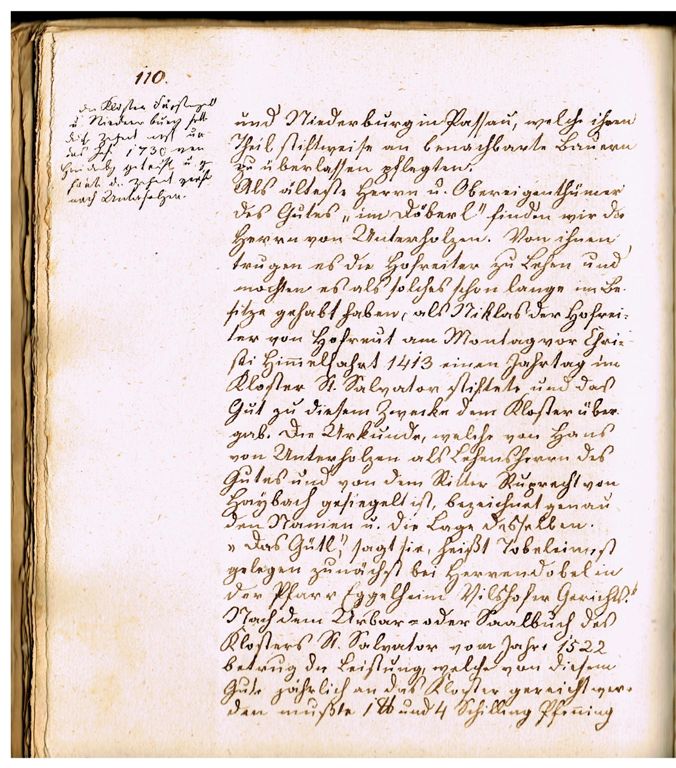 110.
die Kloster Fürstenzell
u Niedernburg
Zehent erst
Jah 1730 von
getauscht u
d. Zehent
nach Unterholzen.
und Niederburg in Passau, welche ihren
Theil stiftweise an benachbarte Bauern
zu überlassen pflegten.
Als älteste Herrn u. Obereigenthümer
des Gutes „im Döberl“ finden wir die
Herrn von Unterholzen. Von ihnen
trugen es die Hofreiter zu Lehen und
mochten es als solches schon lange im Be-
sitze gehabt haben, als Niklas der Hofrei-
ter von Hofreut am Montag vor Chri-
sti Himmelfahrt 1413 einen Jahrtag im
Kloster St. Salvator stiftete und das
Gut zu diesem Zwecke dem Kloster über-
gab. Die Urkunde, welche von Hans
von Unterholzen als Lehensherrn des
Gutes und von dem Ritter Ruprecht von
Haybach gesiegelt ist, bezeichnet genau
den Namen u. die Lage desselben.
„Das Gütl“, sagt sie, heißt Tobeleim, ist
gelegen zunächst bei Herrendobel in
der Pfarr Eggelheim Vilshofer Gerichts.“
Nach dem Urbar= oder Saalbuch des
Klosters St. Salvator vom Jahre 1522
betrug die Leistung, welche von diesem
Gute jährlich an das Kloster gereicht wer-
den mußte 1 ₰ und 4 Schilling Pfenning